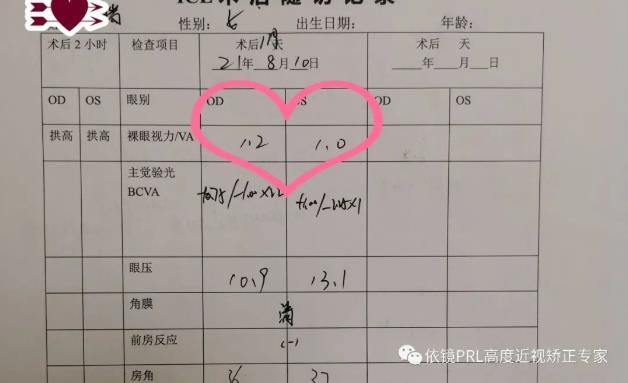 ICL术后随访记录
性别: 女 出生日期: 年龄:
术后2小时 检查项目 术后1周天 术后 天
21年8月10日 ____年____月____日
OD OS 眼别 OD OS OD OS
拱高 拱高 裸眼视力/VA 1.2 1.0
主觉验光
BCVA
眼压 10.9 13.1
角膜 清
前房反应 (-)
房角 36 37
依镜PRL高度近视矫正专家